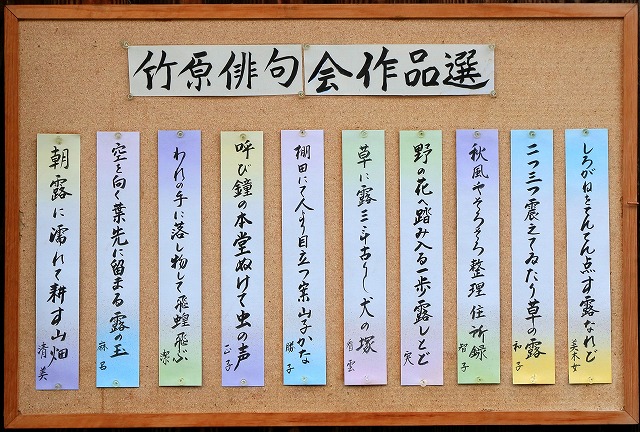 竹原俳句会作品選
しろがねをてんてん点す露なれど
美木女
二つ三つ震えてゐたり草の露
和子
秋風やそろそろ整理住所録
智子
野の花へ踏み入る一歩露しとど
実
草に露三
犬の塚
棚田にて人より目立つ案山子かな
勝子
呼び鐘の本堂ぬけて虫の声
正子
われの手に落し物して飛蝗飛ぶ
潔
空を向く葉先に留まる露の玉
朝露に濡れて耕す山畑
清美